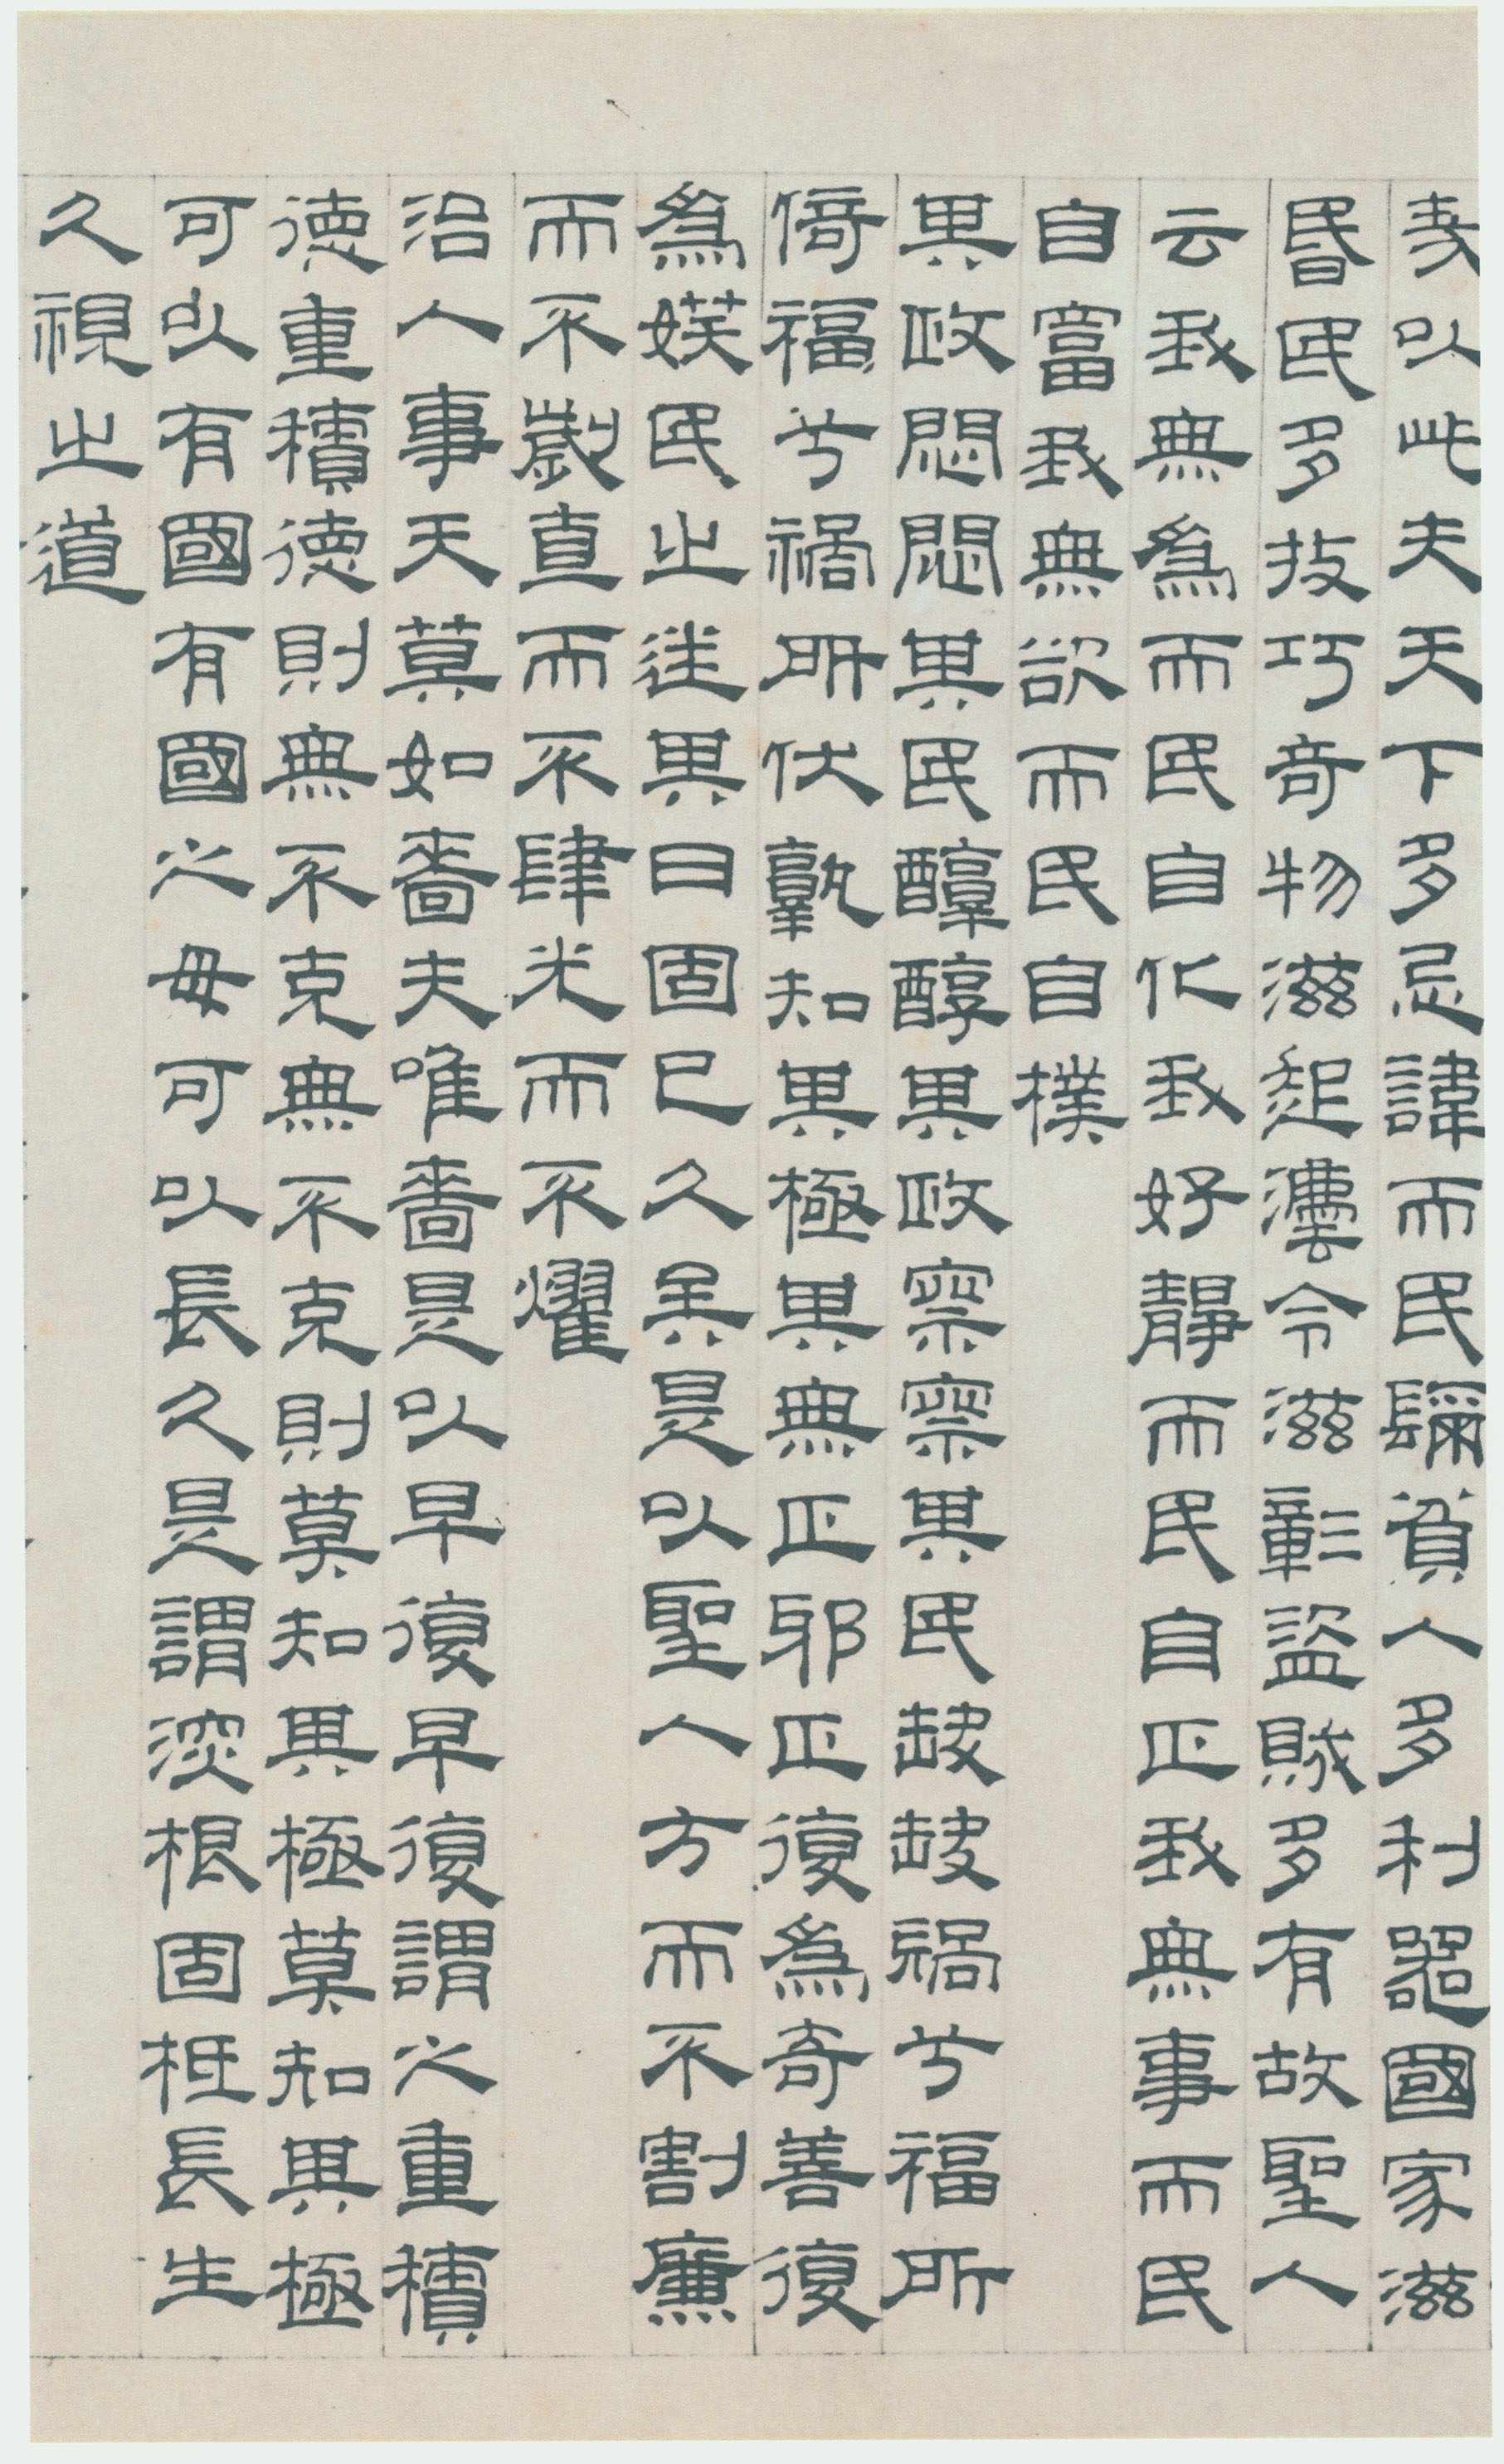 哉以此夫天下多忌諱而民彌貧人多利器國家滋
昬民多技巧奇物滋起灋令滋彰盜賊多有故聖人
云我無爲而民自化我好靜而民自正我無事而民
自富我無欲而民自樸
其政悶悶其民醇醇其政察察其民缺缺禍兮福所
倚福兮禍所伏孰知其極其無正邪正復爲奇善復
爲䄏民之迷其日固已久矣是以聖人方而不割廉
而不劌直而不肆光而不耀
治人事天莫如嗇夫唯嗇是以早復早復謂之重積
德重積德則無不克無不克則莫知其極莫知其極
可以有國有國之母可以長久是謂深根固柢長生
久視之道